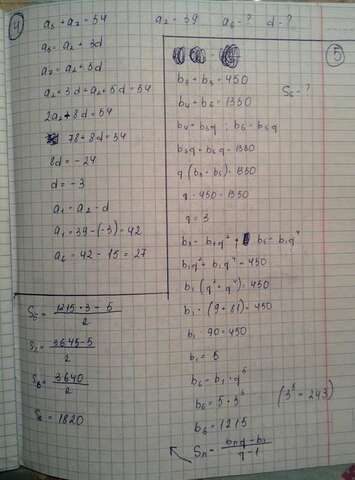 4
a₅ + a₇ = 54  a₂ = 39  a₆ - ?  d - ?
a₅ = a₂ + 3d
a₇ = a₂ + 5d
a₂ + 3d + a₂ + 5d = 54
2a₂ + 8d = 54
78 + 8d = 54
8d = -24
d = -3
a₁ = a₂ - d
a₁ = 39 - (-3) = 42
a₆ = 42 - 15 = 27
5
b₃ + b₅ = 450
S₆ - ?
b₄ + b₆ = 1350
b₄ = b₃q ; b₆ = b₅q
b₃q + b₅q = 1350
q (b₃ + b₅) = 1350
q · 450 = 1350
q = 3
b₃ = b₁q² ; b₅ = b₁q⁴
b₁q² + b₁q⁴ = 450
b₁ (q² + q⁴) = 450
b₁ · (9 + 81) = 450
b₁ 90 = 450
b₁ = 5
b₆ = b₁ · q⁵
b₆ = 5 · 3⁵ (3⁵ = 243)
b₆ = 1215
Sₙ = (bₙq - b₁)/(q - 1)
S₆ = (1215 · 3 - 5)/2
S₆ = (3645 - 5)/2
S₆ = 3640/2
S₆ = 1820